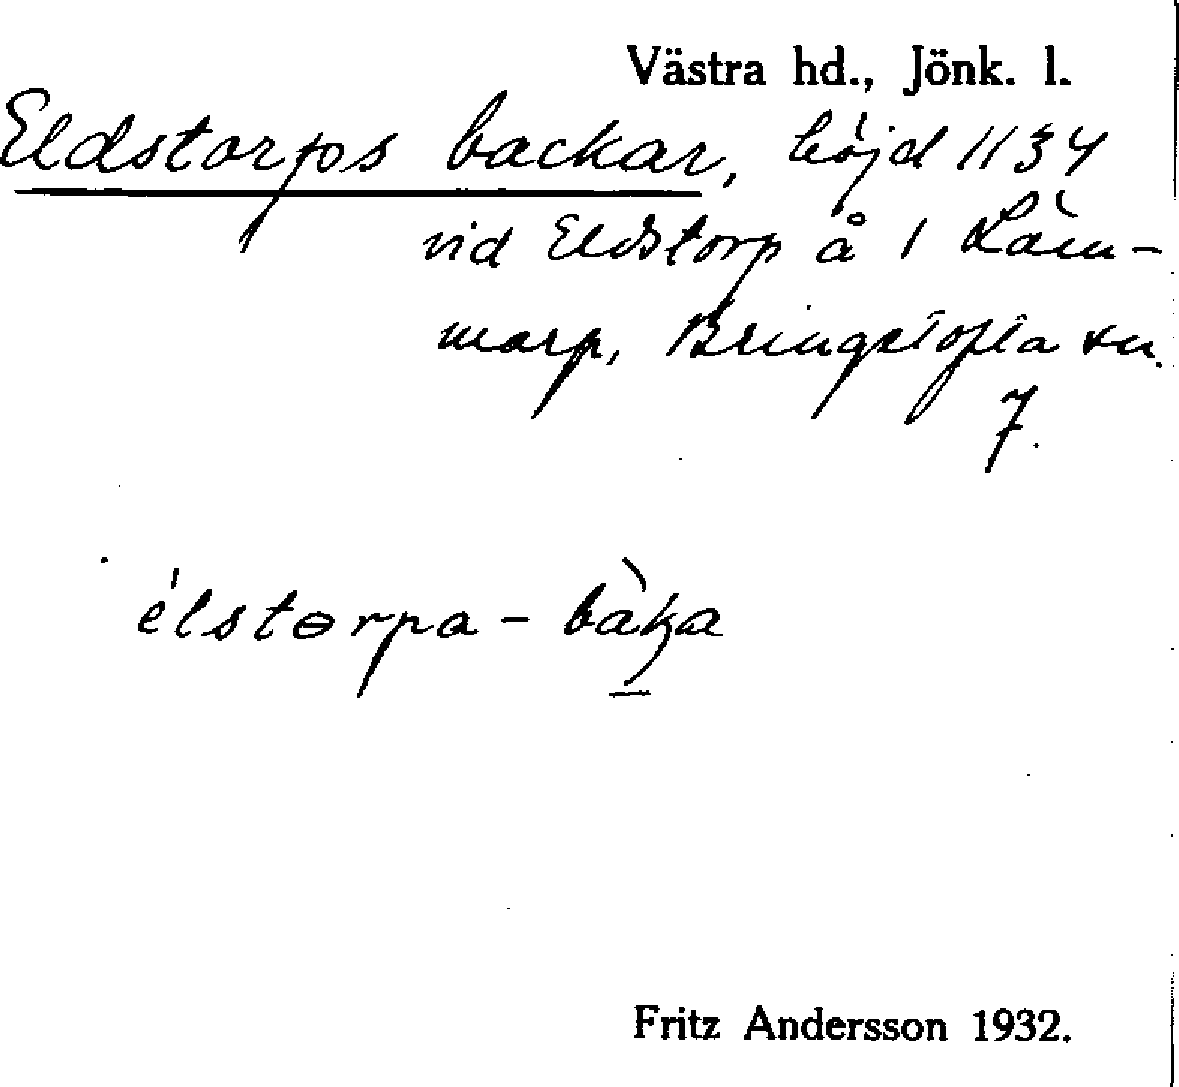 Västra hd., Jönk. l.
Eldstorps backar, höjd 1134
vid Eldstorp å 1 Läm-
marp, Bringetofta sn.
7.
élstɵrpa-bàka
Fritz Andersson 1932.